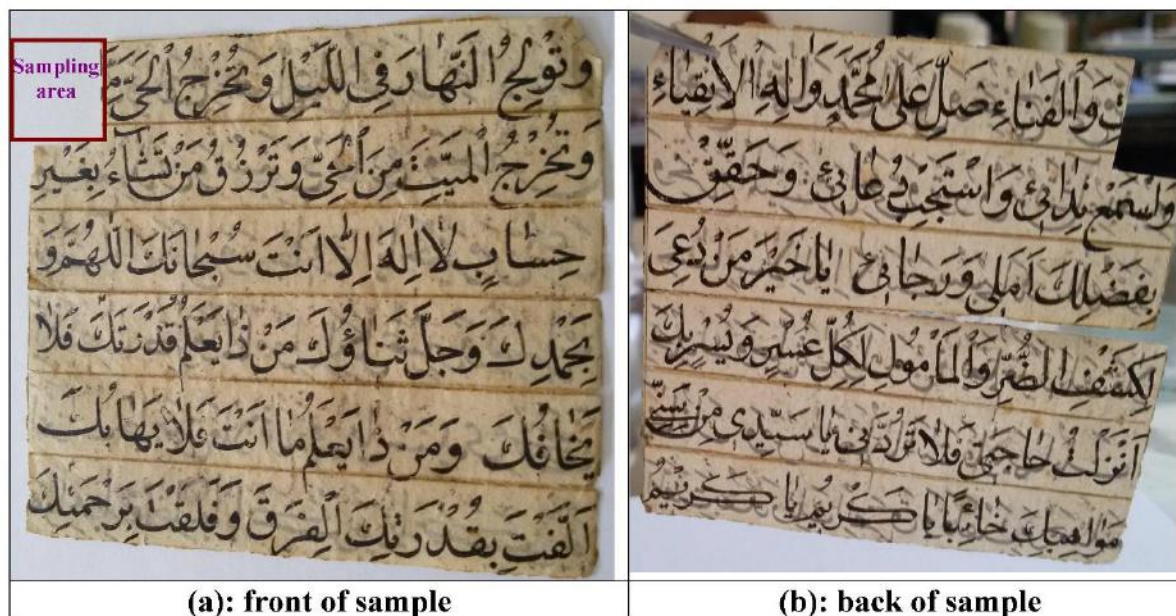 Sampling
area
وَتُولِجُ النَّهَارَ فِي اللَّيْلِ وَتُخْرِجُ الْحَيَّ مِنَ
وَتُخْرِجُ الْمَيِّتَ مِنَ الْحَيِّ وَتَرْزُقُ مَنْ تَشَاءُ بِغَيْرِ
حِسَابٍ لَا اِلٰهَ اِلَّا اَنْتَ سُبْحَانَكَ اللّٰهُمَّ وَ
بِحَمْدِكَ وَجَلَّ ثَنَاؤُكَ مَنْ ذَا يَعْلَمُ قُدْرَتَكَ فَلَا
يَخَافُكَ وَمَنْ ذَا يَعْلَمُ مَا اَنْتَ فَلَا يَهَابُكَ
اَلَّفْتَ بِقُدْرَتِكَ الْفِرَقَ وَفَلَقْتَ بِرَحْمَتِكَ
وَالْفَنَاءِ صَلِّ عَلٰى مُحَمَّدٍ وَاٰلِهِ الْاَتْقِيَاءِ
وَاسْتَمِعْ نِدَائِي وَاسْتَجِبْ دُعَائِي وَحَقِّقْ
بِفَضْلِكَ اَمَلِي وَرَجَائِي يَا خَيْرَ مَنْ دُعِيَ
لِكَشْفِ الضُّرِّ وَالْمَأْمُولِ لِكُلِّ عُسْرٍ وَيُسْرٍ بِكَ
اَنْزَلْتُ حَاجَتِي فَلَا تَرُدَّنِي يَا سَيِّدِي مِنْ سَنِيِّ
مَوَاهِبِكَ خَائِبًا يَا كَرِيمُ يَا كَرِيمُ
(a): front of sample
(b): back of sample